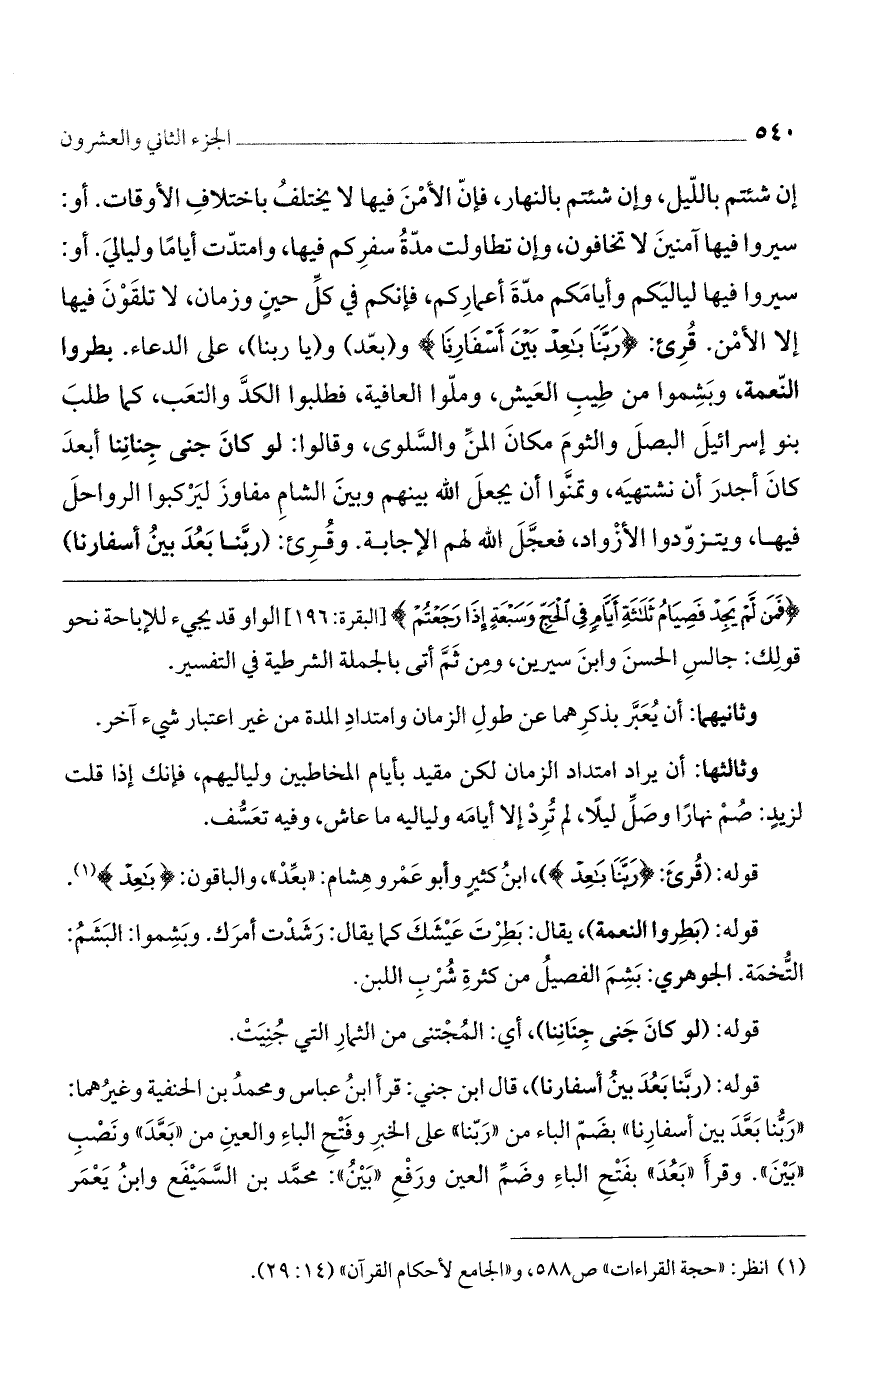 ٥٤٠ ــــــــــــــــــــ الجزء الثاني والعشرون
إن شئتم باللّيل، وإن شئتم بالنهار، فإنّ الأمْنَ فيها لا يختلفُ باختلافِ الأوقات. أو:
سيروا فيها آمنينَ لا تخافون، وإن تطاولت مدّةُ سفرِكم فيها، وامتدّت أيامًا وليالِيَ. أو:
سيروا فيها لياليَكم وأيامَكم مدّةَ أعمارِكم، فإنكم في كلِّ حينٍ وزمان، لا تلقَوْنَ فيها
إلا الأمْن. قُرِئ: ﴿رَبَّنَا بَٰعِدْ بَيْنَ أَسْفَارِنَا﴾ و(بعّد) و(يا ربنا)، على الدعاء. بطروا
النّعمة، وبَشِموا من طِيبِ العَيش، وملّوا العافية، فطلبوا الكدَّ والتعَب، كما طلبَ
بنو إسرائيلَ البصلَ والثومَ مكانَ المنِّ والسَّلوى، وقالوا: لو كانَ جنى جِنانِنا أبعدَ
كانَ أجدرَ أن نشتهيَه، وتمنَّوا أن يجعلَ الله بينهم وبينَ الشامِ مفاوزَ ليَرْكبوا الرواحلَ
فيهـا، ويتـزوّدوا الأزْواد، فعجَّلَ الله لهم الإجابـة. وقُـرِئ: (ربَّنـا بَعُدَ بينُ أسفارنا)
﴿فَمَن لَّمْ يَجِدْ فَصِيَامُ ثَلَٰثَةِ أَيَّامٍ فِي ٱلْحَجِّ وَسَبْعَةٍ إِذَا رَجَعْتُمْ﴾ [البقرة: ١٩٦] الواو قد يجيء للإباحة نحو
قولِك: جالسِ الحسنَ وابنَ سيرين، ومِن ثَمَّ أتى بالجملة الشرطية في التفسير.
وثانيهما: أن يُعَبَّر بذكرِهما عن طولِ الزمان وامتدادِ المدة من غير اعتبار شيء آخر.
وثالثها: أن يراد امتداد الزمان لكن مقيد بأيام المخاطبين ولياليهم، فإنك إذا قلت
لزيدٍ: صُمْ نهارًا وصَلِّ ليلًا، لم تُرِدْ إلا أيامَه ولياليه ما عاش، وفيه تعَسُّف.
قوله: (قُرئَ: ﴿رَبَّنَا بَٰعِدْ﴾)، ابنُ كثيرٍ وأبو عَمْرو هِشام: «بعِّدْ»، والباقون: ﴿بَٰعِدْ﴾(١).
قوله: (بَطِروا النعمة)، يقال: بَطِرْتَ عَيْشَكَ كما يقال: رَشَدْت أمرَك. وبَشِموا: البَشَمُ:
التُّخمَة. الجوهري: بَشِمَ الفصيلُ من كثرةِ شُرْبِ اللبن.
قوله: (لو كانَ جَنى جِنَانِنا)، أي: المُجْتنى من الثمارِ التي جُنِيَتْ.
قوله: (ربَّنا بَعُدَ بينُ أسفارنا)، قال ابن جني: قرأ ابنُ عباس ومحمدُ بن الحنفية وغيرُهما:
«رَبُّنا بَعَّدَ بين أسفارِنا» بضَمّ الباء من «رَبّنا» على الخبرِ وفَتْحِ الباءِ والعينِ من «بَعَّدَ» ونَصْبِ
«بَيْنَ». وقرأَ «بَعُدَ» بفَتْحِ الباءِ وضَمِّ العين ورَفْعِ «بَيْنُ»: محمَّد بن السَّمَيْفَع وابنُ يَعْمَر
(١) انظر: «حجة القراءات» ص٥٨٨، و«الجامع لأحكام القرآن» (١٤: ٢٩).